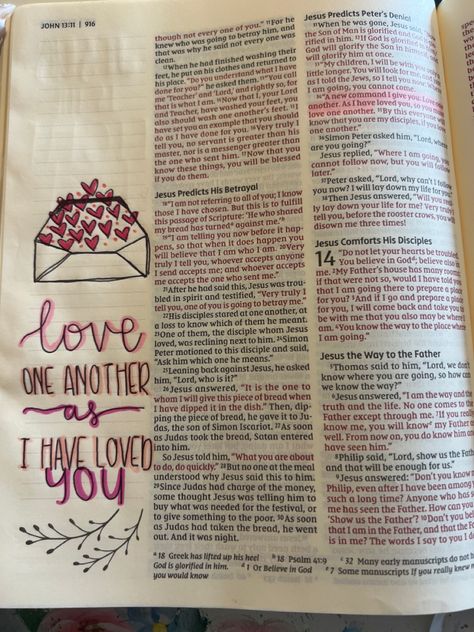 JOHN 13:11 | 916
love
ONE ANOTHER
as
I HAVE LOVED
YOU
though not every one of you." 11For he
knew who was going to betray him, and
that was why he said not every one was
clean.
12When he had finished washing their
feet, he put on his clothes and returned to
his place. "Do you understand what I have
done for you?" he asked them. 13"You call
me 'Teacher' and 'Lord,' and rightly so, for
that is what I am. 14Now that I, your Lord
and Teacher, have washed your feet, you
also should wash one another's feet. 15I
have set you an example that you should
do as I have done for you. 16Very truly I
tell you, no servant is greater than his
master, nor is a messenger greater than
the one who sent him. 17Now that you
know these things, you will be blessed
if you do them.
Jesus Predicts His Betrayal
18"I am not referring to all of you; I know
those I have chosen. But this is to fulfill
this passage of Scripture: 'He who shared
my bread has turned a against me.' b
19"I am telling you now before it hap-
pens, so that when it does happen you
will believe that I am who I am. 20Very
truly I tell you, whoever accepts anyone
I send accepts me; and whoever accepts
me accepts the one who sent me."
21After he had said this, Jesus was trou-
bled in spirit and testified, "Very truly I
tell you, one of you is going to betray me."
22His disciples stared at one another, at
a loss to know which of them he meant.
23One of them, the disciple whom Jesus
loved, was reclining next to him. 24Simon
Peter motioned to this disciple and said,
"Ask him which one he means."
25Leaning back against Jesus, he asked
him, "Lord, who is it?"
26Jesus answered, "It is the one to
whom I will give this piece of bread when
I have dipped it in the dish." Then, dip-
ping the piece of bread, he gave it to Ju-
das, the son of Simon Iscariot. 27As soon
as Judas took the bread, Satan entered
into him.
So Jesus told him, "What you are about
to do, do quickly." 28But no one at the meal
understood why Jesus said this to him.
29Since Judas had charge of the money,
some thought Jesus was telling him to
buy what was needed for the festival, or
to give something to the poor. 30As soon
as Judas had taken the bread, he went
out. And it was night.
Jesus Predicts Peter's Denial
31When he was gone, Jesus said,
the Son of Man is glorified and God is
in him. 32If God is glorified in
God will glorify the Son in himself,
will glorify him at once.
33"My children, I will be with you only
little longer. You will look for me, and
as I told the Jews, so I tell you now: Where
I am going, you cannot come.
34"A new command I give you: Love one
another. As I have loved you, so you must
love one another. 35By this everyone will
know that you are my disciples, if you love
one another."
36Simon Peter asked him, "Lord, where
are you going?"
Jesus replied, "Where I am going, you
cannot follow now, but you will follow
later."
37Peter asked, "Lord, why can't I follow
you now? I will lay down my life for you."
38Then Jesus answered, "Will you really
lay down your life for me? Very truly I
tell you, before the rooster crows, you will
disown me three times!
Jesus Comforts His Disciples
14 "Do not let your hearts be troubled.
You believe in God d; believe also
in me. 2My Father's house has many rooms;
if that were not so, would I have told you
that I am going there to prepare a place
for you? 3And if I go and prepare a place
for you, I will come back and take you to
be with me that you also may be where I
am. 4You know the way to the place where
I am going."
Jesus the Way to the Father
5Thomas said to him, "Lord, we don't
know where you are going, so how can
we know the way?"
6Jesus answered, "I am the way and the
truth and the life. No one comes to the
Father except through me. 7If you really
know me, you will know e my Father as
well. From now on, you do know him and
have seen him."
8Philip said, "Lord, show us the Father
and that will be enough for us."
9Jesus answered: "Don't you know me,
Philip, even after I have been among you
such a long time? Anyone who has seen
me has seen the Father. How can you say,
'Show us the Father'? 10Don't you believe
that I am in the Father, and that the Father
is in me? The words I say to you I do
a 18 Greek has lifted up his heel b 18 Psalm 41:9 c 32 Many early manuscripts do not
God is glorified in him. d 1 Or Believe in God e 7 Some manuscripts If you really know
you would know